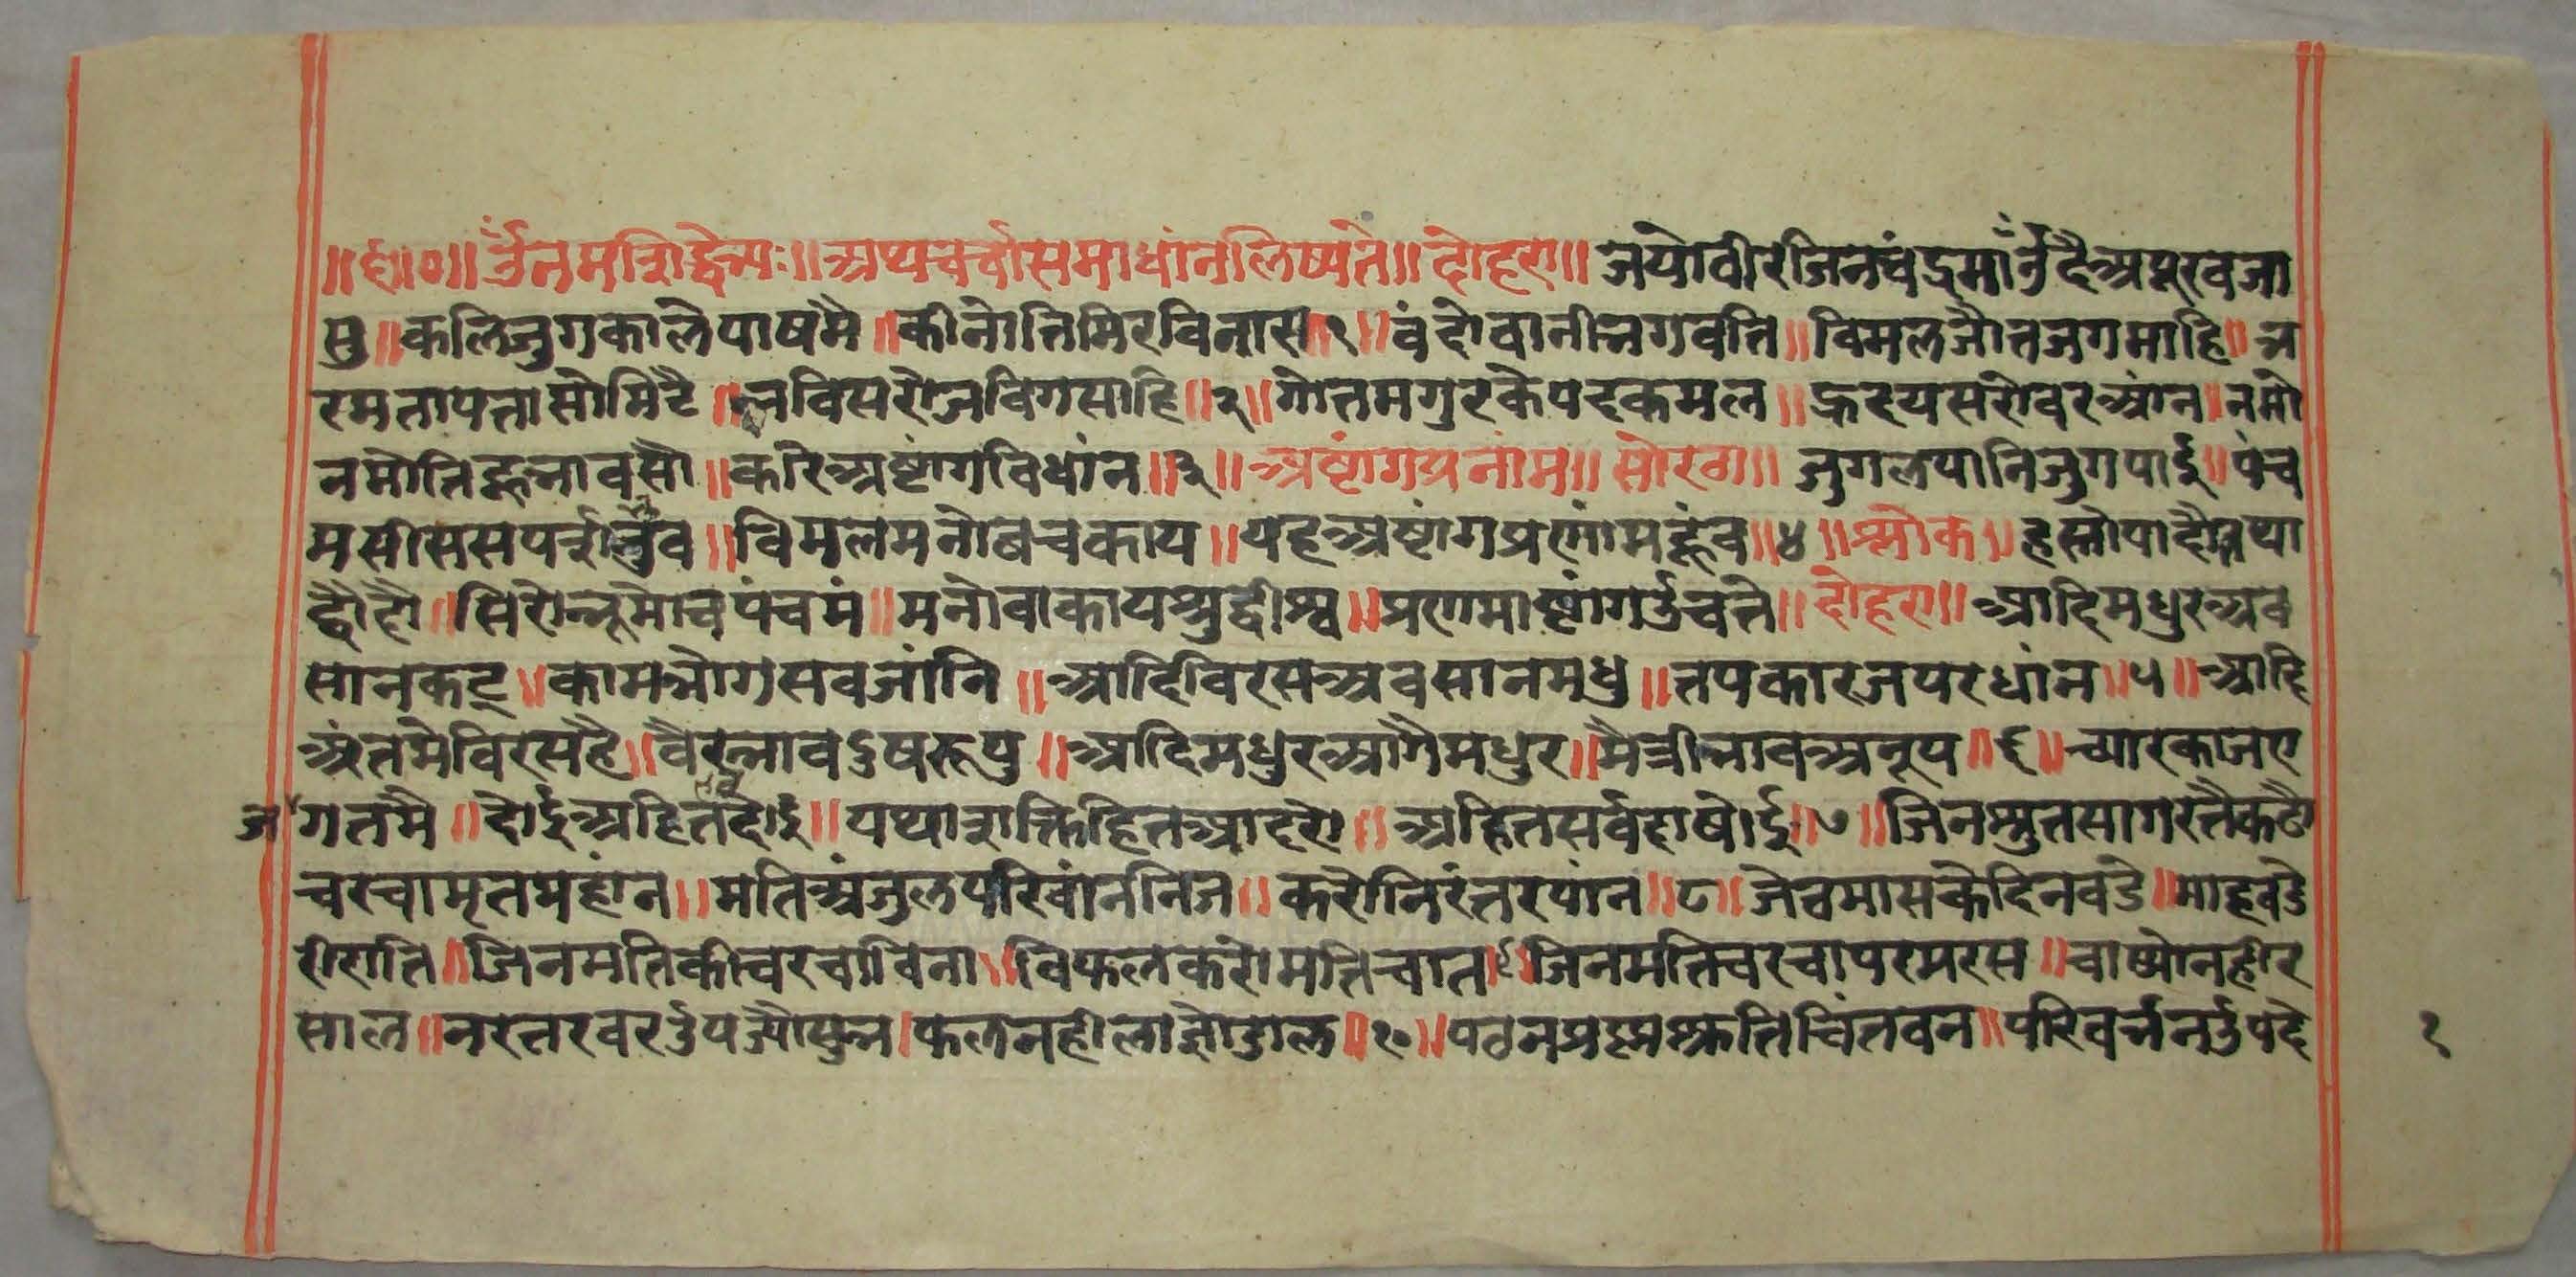 ॥ र्द०॥ ॐ नमः सिद्धेभ्यः॥ अथ चर्चा समाधांन लिष्यते॥ दोहरा॥ जयो वीर जिनचंद्रमां उदै अपूरव जा
सु॥ कलिजुग काले पाष मै॥ कीनो तिमिर विनास १॥ वंदो वानी भगवति॥ विमल जोत जगमाहि॥ भ
रम ताप तासो मिटै॥ भवि सरोज विगसाहि॥२॥ गोतम गुर के पद कमल॥ ह्रदय सरोवर आंन॥ नमो
नमो तिह्न भाव सौ॥ करि अष्टांग विधांन॥३॥ अष्टांग प्रनांम॥ सोरठा॥ जुगल पानि जुग पाई॥ पंच
म सीस सपर्श भुव॥ विमल मनो बच काय॥ यह अष्टांग प्रणांम हूंव॥४॥ श्लोक॥ हस्तौ पादौ तथा
द्वौ हौ॥ सिरो भूमौ च पंचमं॥ मनो वाकाय शुद्धीश्च॥ प्रणमाष्टांग उचते॥ दोहरा॥ आदि मधुर अव
सान कटू॥ काम भोग सब जांनि॥ आदि विरस अवसान मधु॥ तप कारज परधांन॥५॥ आदि
अंत मै विरस है॥ वैर भाव दुष रूपु॥ आदि मधुर आगै मधुर॥ मैत्री भाव अनूप॥६॥ च्यार काज ए
ज गत मै॥ दोई अहित हित दोई॥ यथा शक्ति हित आदरो॥ अहित सर्वदा षोई॥७॥ जिन श्रुत सागर तै कढौ
चरचामृत महांन॥ मति अंजुल परिवांन निज॥ करो निरंतर पांन॥८॥ जेच मास के दिन वडे॥ माह वडे
री राति॥ जिनमति की चरचा विना॥ विफल करो मति भ्रात ९॥ जिनमति चरचा परम रस॥ चाष्यो नही र
साल॥ नर तरवर उपज्यौ सुभ्न। फल नही लाज्ञो डाल॥१०॥ पठन प्रह्म स्क्रति चिंतवन॥ परिवर्त्तन उपदे
१